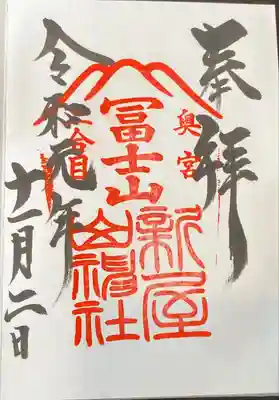 奉拝
奥宮
冨士山
新屋
山神社
六合目
令和元年
十一月二日